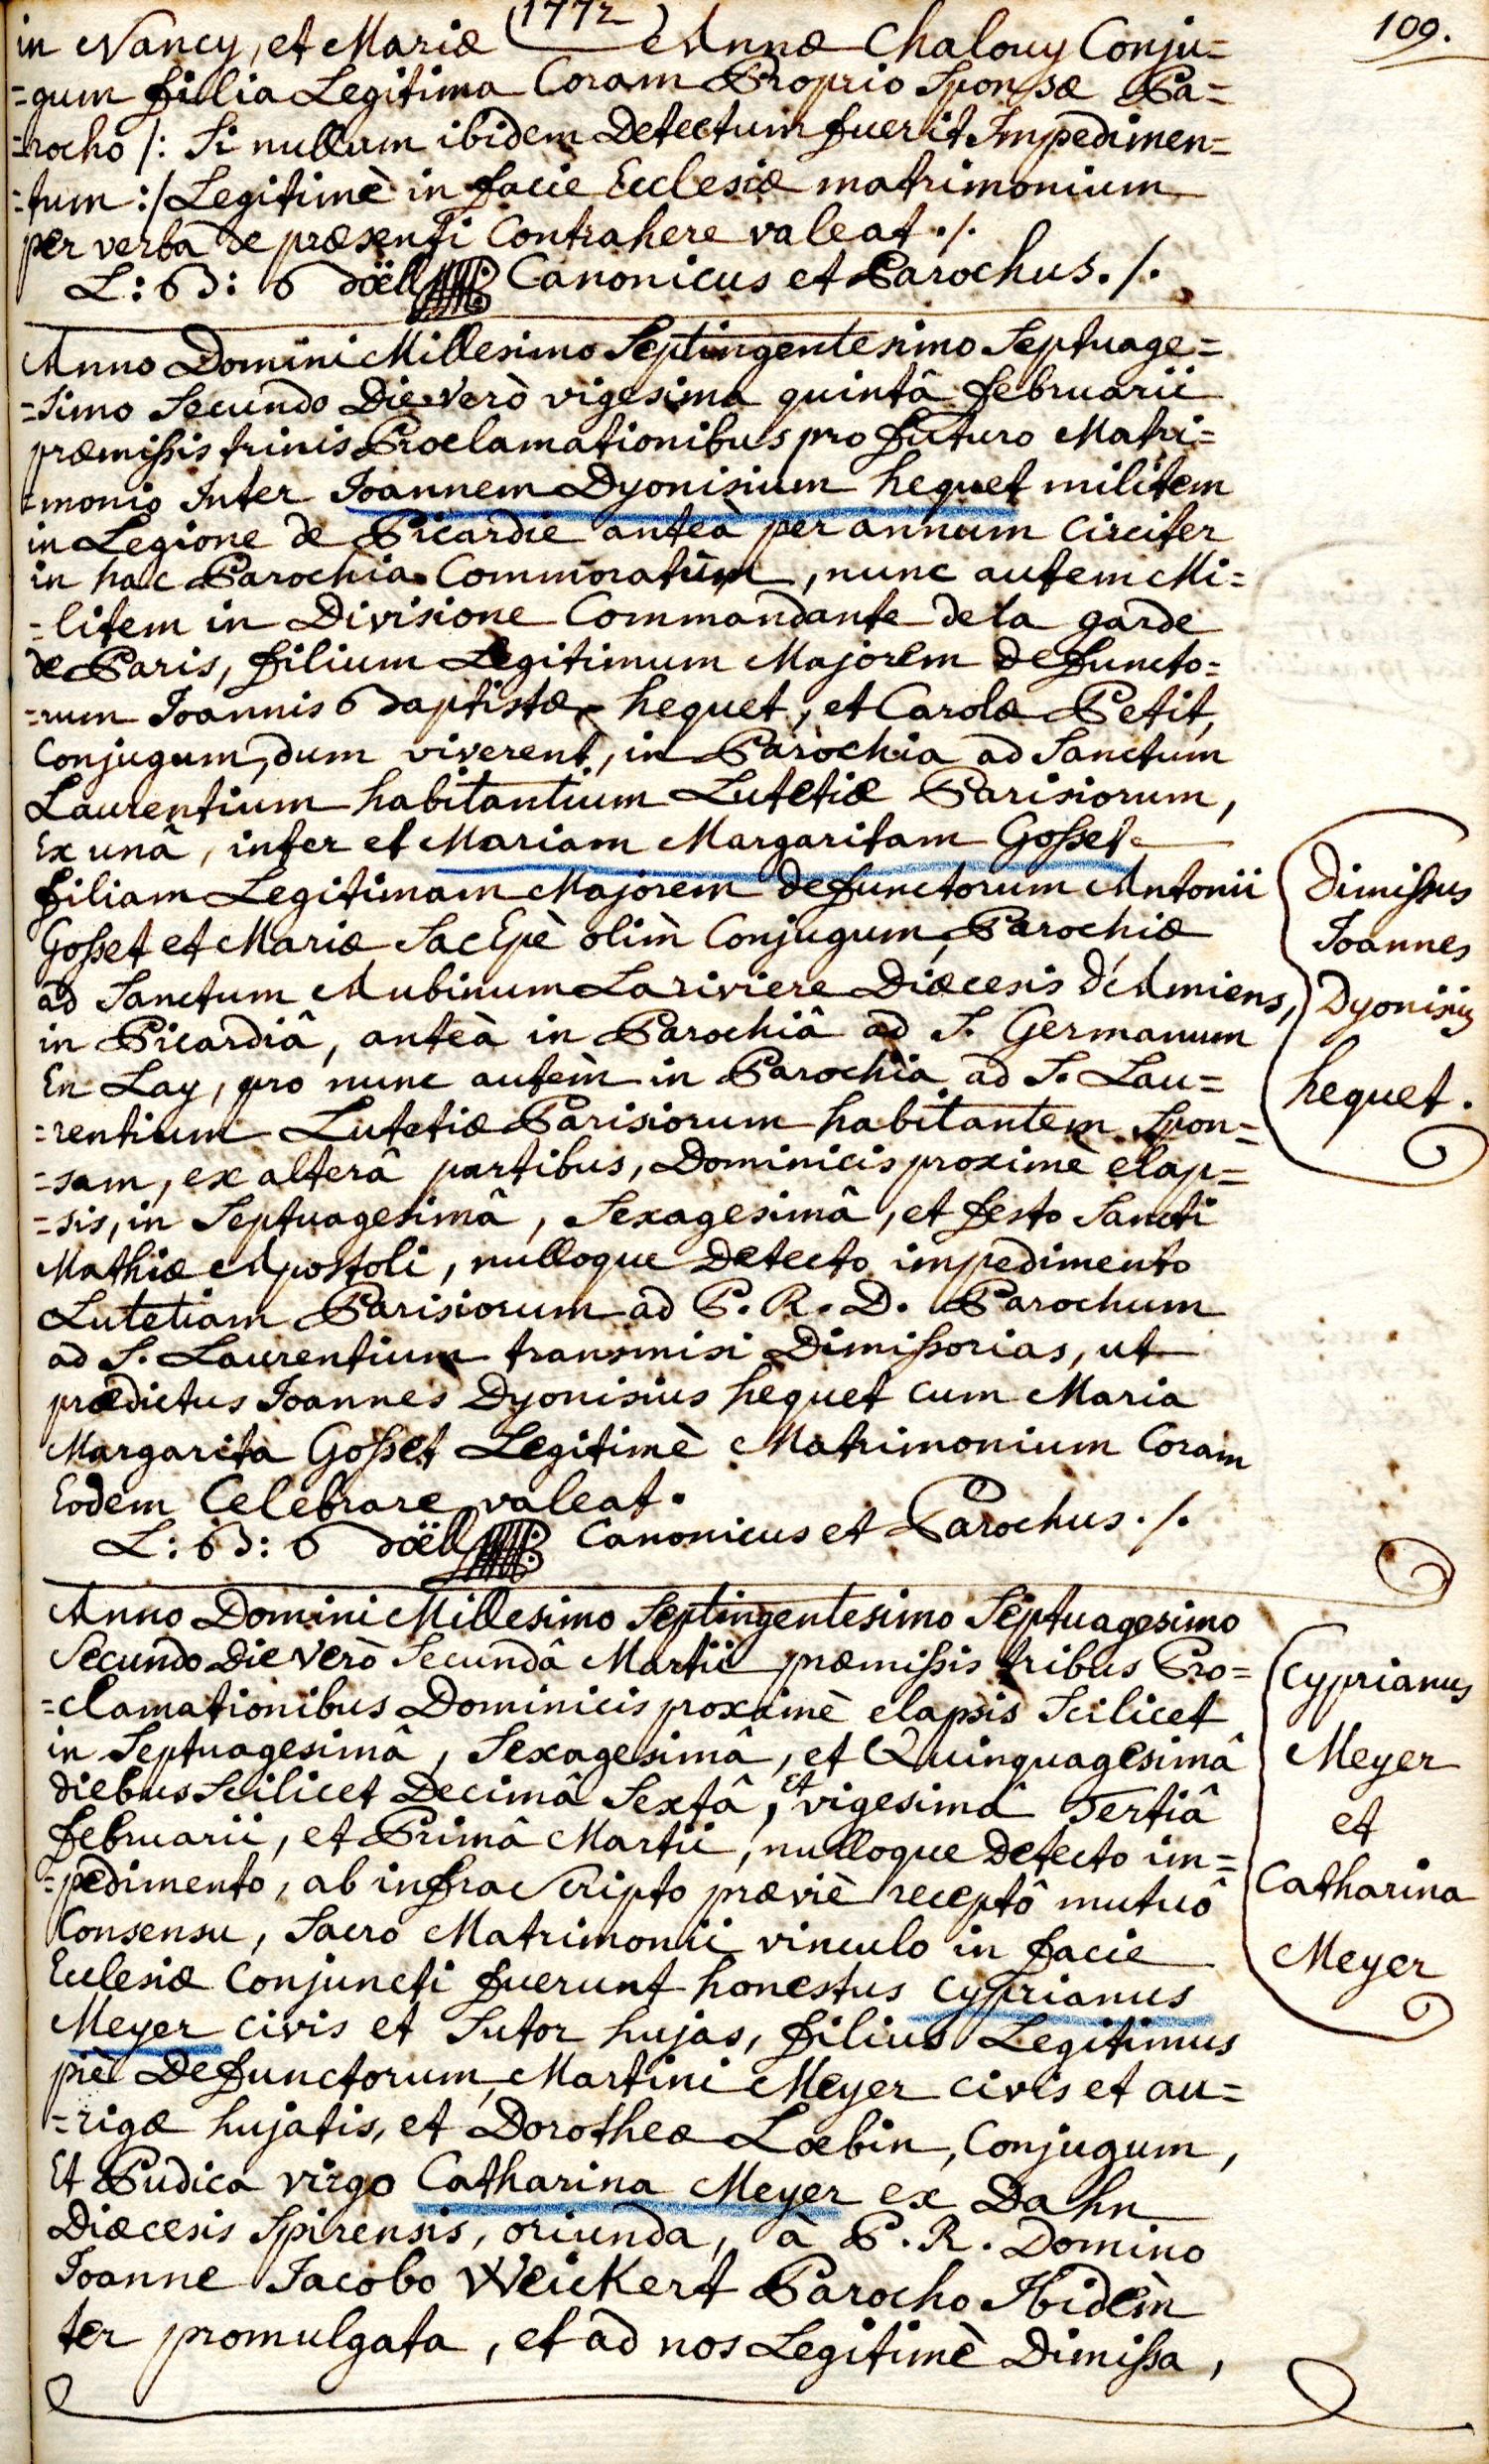 1772
109.
in Nancy, et Mariæ Annæ Chalouy Conju=
=gum filia Legitima Coram Proprio Sponsæ Pa=
=rocho /: Si nullum ibidem Detectum fuerit Impedimen=
=tum :/ Legitimè in facie Ecclesiæ matrimonium
per verba de præsenti Contrahere valeat ./.
L: B: Boëll Canonicus et Parochus ./.
Anno Domini Millesimo Septingentesimo Septuage=
=simo Secundo Die verò vigesima quintâ februarii
præmissis trinis Proclamationibus pro futuro Matri=
=monio Inter Joannem Dyonisium hequet militem
in Legione de Picardie anteà per annum circiter
in hac Parochia Commoratum, nunc autem Mi=
=litem in Divisione Commandante de la garde
de Paris, filium Legitimum Majorem defuncto=
=rum Joannis Baptistæ hequet, et Carolæ Petit,
Conjugum, dum viverent, in Parochia ad Sanctum
Laurentium habitantium Lutetiæ Parisiorum,
Ex unâ, inter et Mariam Margaritam Gosset
filiam Legitimam Majorem defunctorum Antonii
Gosset et Mariæ Sac Epè olim Conjugum, Parochiæ
ad Sanctum Aubinum Lariviere Diæcesis d'Amiens,
in Picardiâ, anteà in Parochiâ ad S. Germanum
En Lay, pro nunc autèm in Parochia ad S. Lau=
=rentium Lutetiæ Parisiorum habitantem Spon=
=sam, ex alterâ partibus, Dominicis proximè elap=
=sis, in Septuagesimâ, Sexagesimâ, et festo Sancti
Mathiæ Apostoli, nulloque Detecto impedimento
Lutetiam Parisiorum ad P. R. D. Parochum
ad S. Laurentium transmisi Dimissorias, ut
prædictus Joannes Dyonisius hequet cum Maria
Margarita Gosset Legitimè Matrimonium Coram
Eodem Celebrare valeat.
L: B: Boëll Canonicus et Parochus ./.
Dimissus
Joannes
Dyonisius
hequet.
Anno Domini Millesimo Septingentesimo Septuagesimo
Secundo Die verò Secundâ Martii præmissis tribus Pro=
=clamationibus Dominicis proximè elapsis Scilicet
in Septuagesimâ, Sexagesimâ, et Quinquagesimâ
diebus Scilicet Decimâ Sextâ, et vigesimâ Tertiâ
februarii, et Primâ Martii, nulloque Detecto im=
=pedimento, ab infra Scripto præviè receptô mutuô
Consensu, Sacro Matrimonii vinculo in facie
Ecclesiæ Conjuncti fuerunt honestus Cyprianus
Meyer civis et Sutor hujas, filius Legitimus
piè Defunctorum Martini Meyer civis et au=
=rigæ hujatis, et Dorotheæ Lœbin, Conjugum,
Et Pudica virgo Catharina Meyer ex Dahn
Diæcesis Spirensis, oriunda, à P. R. Domino
Joanne Jacobo Weickert Parocho Ibidèm
ter promulgata, et ad nos Legitimè Dimissa,
Cyprianus
Meyer
et
Catharina
Meyer